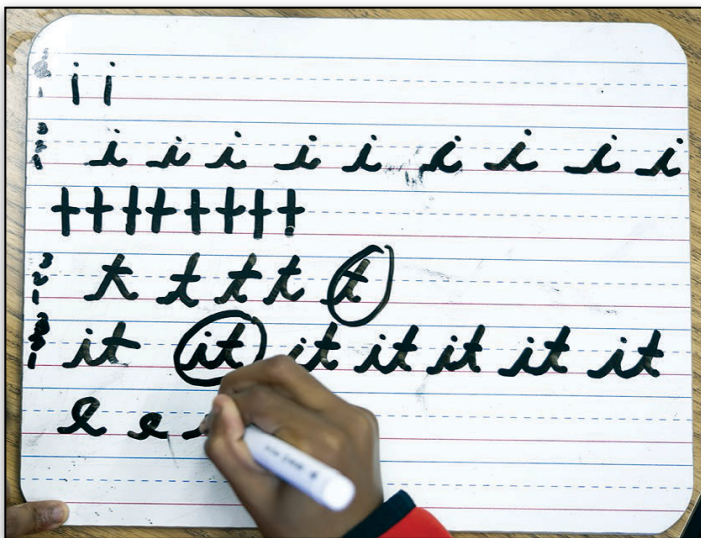 i i
i i i i i i i i i
t t t t t t t t
t t t t t
it it it it it it it
e e